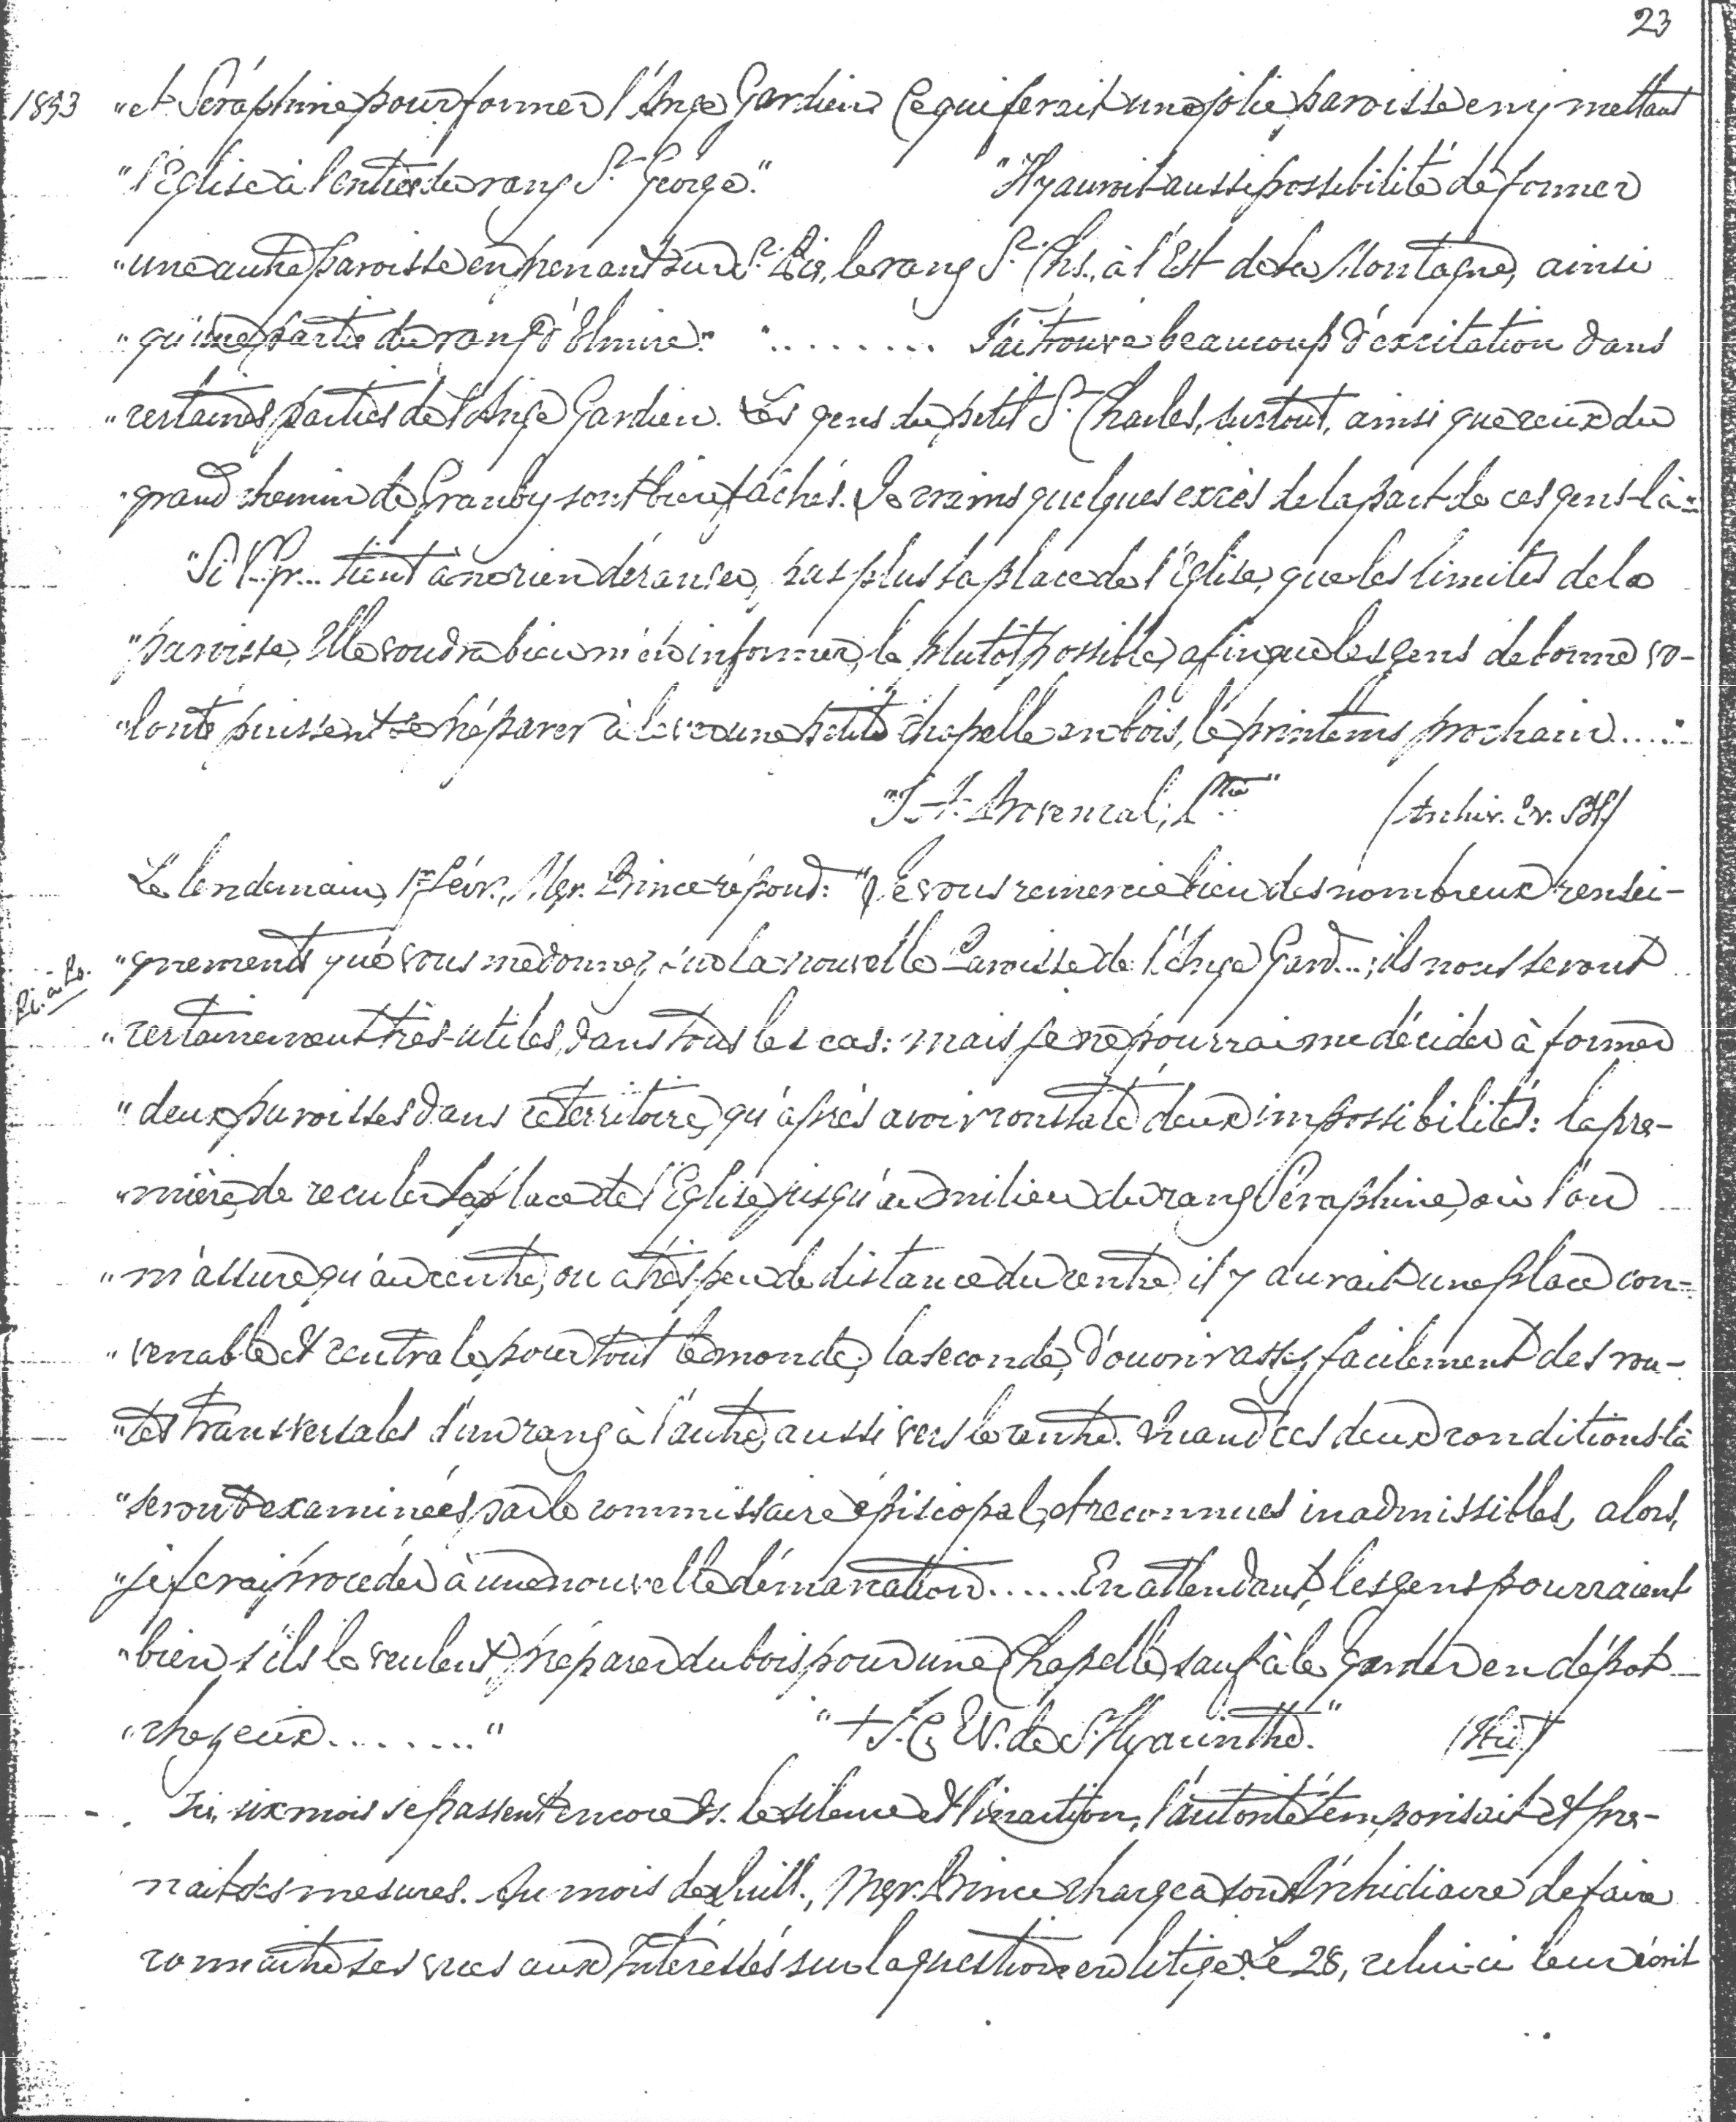 23
1853 "et Séraphine pour former l'Ange Gardien Ce qui ferait une jolie paroisse en y mettant
"l'Eglise à l'entrée du rang St. George." "Il y aurait aussi possibilité de former
"une autre paroisse en prenant sur St. Pie, le rang St. Chs., à l'Est de la Montagne, ainsi
"qu'une partie du rang d'Elmire." "........ J'ai trouvé beaucoup d'excitation dans
"certaines parties de l'Ange Gardien. Les gens du petit St. Charles, surtout, ainsi que ceux du
"grand chemin de Granby sont bien fâchés. Je crains quelques excès de la part de ces gens-là."
"Si V. Gr... tient à ne rien déranger, pas plus la place de l'Eglise, que les limites de la
"paroisse, Elle voudra bien m'en informer, le plutôt possible, afin que les gens de bonne vo-
"lonté puissent se préparer à lever une petite chapelle en bois, le printems prochain....."
"J. A. Provencal, Ptre" (Archiv. Ev. StH.)
Le lendemain, 1er Févr., Mgr. Prince répond: "Je vous remercie bien des nombreux rensei-
"gnements que vous me donnez sur la nouvelle Paroisse de l'Ange Gard...; ils nous seront
"certainement très-utiles, dans tous les cas: mais je ne pourrai me décider à former
"deux paroisses dans ce territoire, qu'après avoir constaté deux impossibilités: la pre-
"mière, de reculer la place de l'Eglise jusqu'au milieu du rang Séraphine, où l'on
"m'assure qu'au centre, ou à très peu de distance du centre, il y aurait une place con-
"venable et centrale pour tout le monde; la seconde, d'ouvrir assez facilement des rou-
"tes transversales d'un rang à l'autre, aussi vers le centre. Quand ces deux conditions-là
"seront examinées par le commissaire épiscopal, et reconnues inadmissibles, alors,
"je ferai procéder à une nouvelle démarcation ...... En attendant, les gens pourraient
"bien, s'ils le veulent, préparer du bois pour une Chapelle, sauf à le garder en dépot
"chez eux........" "+ J. C. Ev. de St. Hyacinthe." (Ibid.)
Ici, six mois se passent encore ds. le silence et l'inaction, l'autorité temporisait et pre-
nait ses mesures. Au mois de Juill., Mgr. Prince chargea son Archidiacre de faire
connaître ses vues aux Intéressés sur la question en litige. Le 28, celui-ci leur écrit